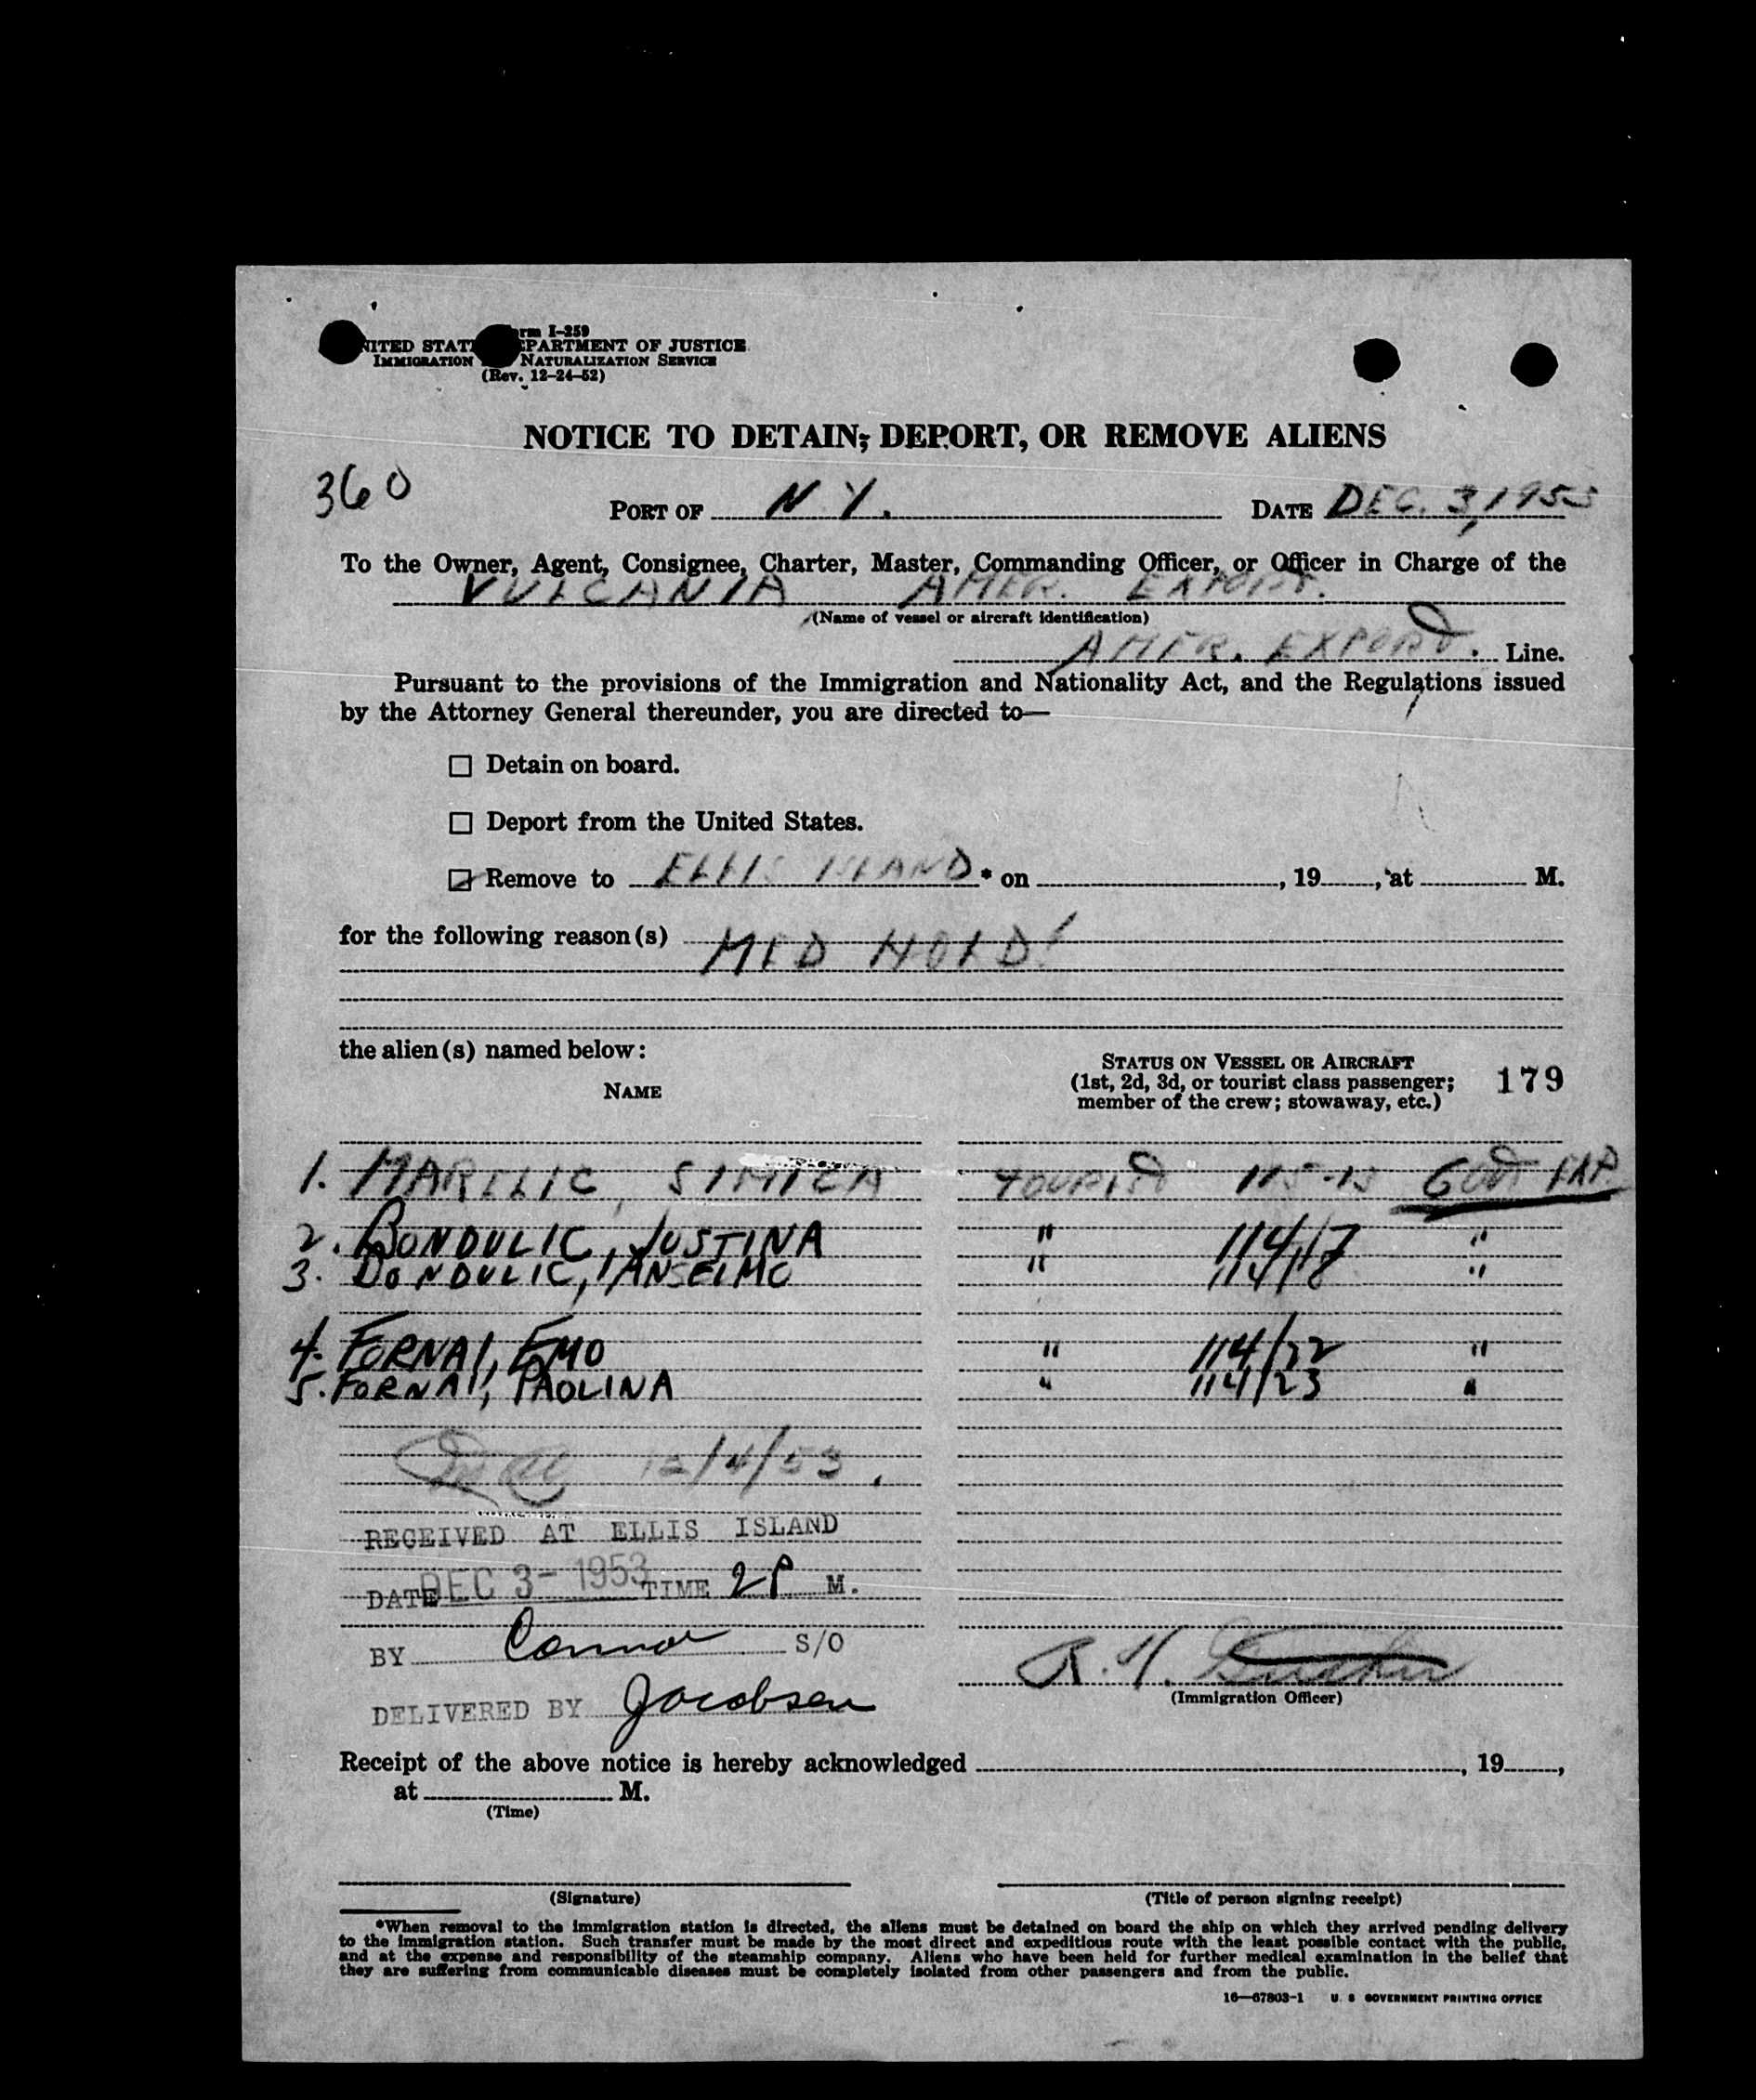 Form I-259
UNITED STATES DEPARTMENT OF JUSTICE
IMMIGRATION NATURALIZATION SERVICE
(Rev. 12-24-52)
NOTICE TO DETAIN, DEPORT, OR REMOVE ALIENS
360
PORT OF N.Y. DATE DEC. 3, 1953
To the Owner, Agent, Consignee, Charter, Master, Commanding Officer, or Officer in Charge of the
VULCANIA AMER. EXPORT.
(Name of vessel or aircraft identification)
AMER. EXPORT. Line.
Pursuant to the provisions of the Immigration and Nationality Act, and the Regulations issued
by the Attorney General thereunder, you are directed to—
☐ Detain on board.
☐ Deport from the United States.
☑ Remove to ELLIS ISLAND * on , 19 , at M.
for the following reason(s) MED HOLD!
the alien(s) named below:
STATUS ON VESSEL OR AIRCRAFT
(1st, 2d, 3d, or tourist class passenger;
member of the crew; stowaway, etc.)
179
NAME
1. MARELIC, SIMICA TOURIST 115-15 GOVT EXP.
2. BONDULIC, JUSTINA " 114/17 "
3. BONDULIC, ANSELMO " 114/18 "
4. FORNAI, EMO " 114/22 "
5. FORNAI, PAOLINA " 114/23 "
12/4/53.
RECEIVED AT ELLIS ISLAND
DATE DEC 3- 1953 TIME 2 P M.
BY Connor S/O
R. H.
(Immigration Officer)
DELIVERED BY Jacobsen
Receipt of the above notice is hereby acknowledged , 19 ,
at M.
(Time)
(Signature) (Title of person signing receipt)
*When removal to the immigration station is directed, the aliens must be detained on board the ship on which they arrived pending delivery
to the immigration station. Such transfer must be made by the most direct and expeditious route with the least possible contact with the public,
and at the expense and responsibility of the steamship company. Aliens who have been held for further medical examination in the belief that
they are suffering from communicable diseases must be completely isolated from other passengers and from the public.
16—67803-1 U. S GOVERNMENT PRINTING OFFICE